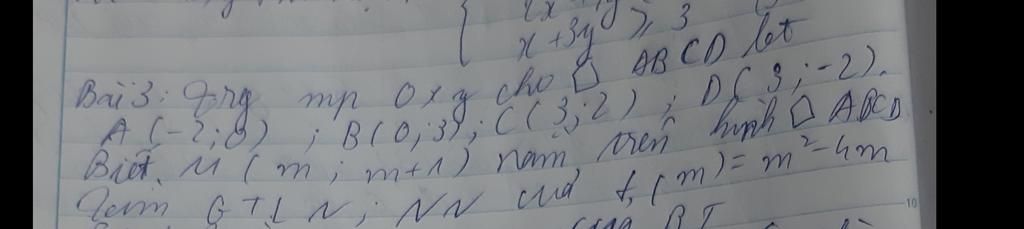 x + 3y ⩾ 3
Bài 3: Trg mp Oxy cho □ ABCD bết
A(-2; 0) ; B(0; 3); C(3; 2) ; D(3; -2).
Biết. M (m ; m+1) nằm trên hình □ ABCD
Tìm GTLN; NN của f(m) = m² - 4m
của BT